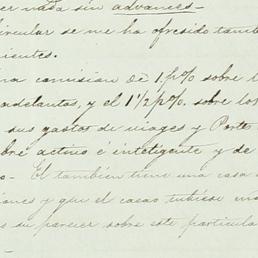 er nada sin advances—
ircular se me ha ofresido tambi
ientes.
na comision de 1 p% sobre l
adelantos, y el 1 1/2 p% sobre lo
sus gastos de viages y Porte
bre activo é inteligente y de
o- El tambien tiene una casa
iones y que el casas tubiese
s su parecer sobre este particula